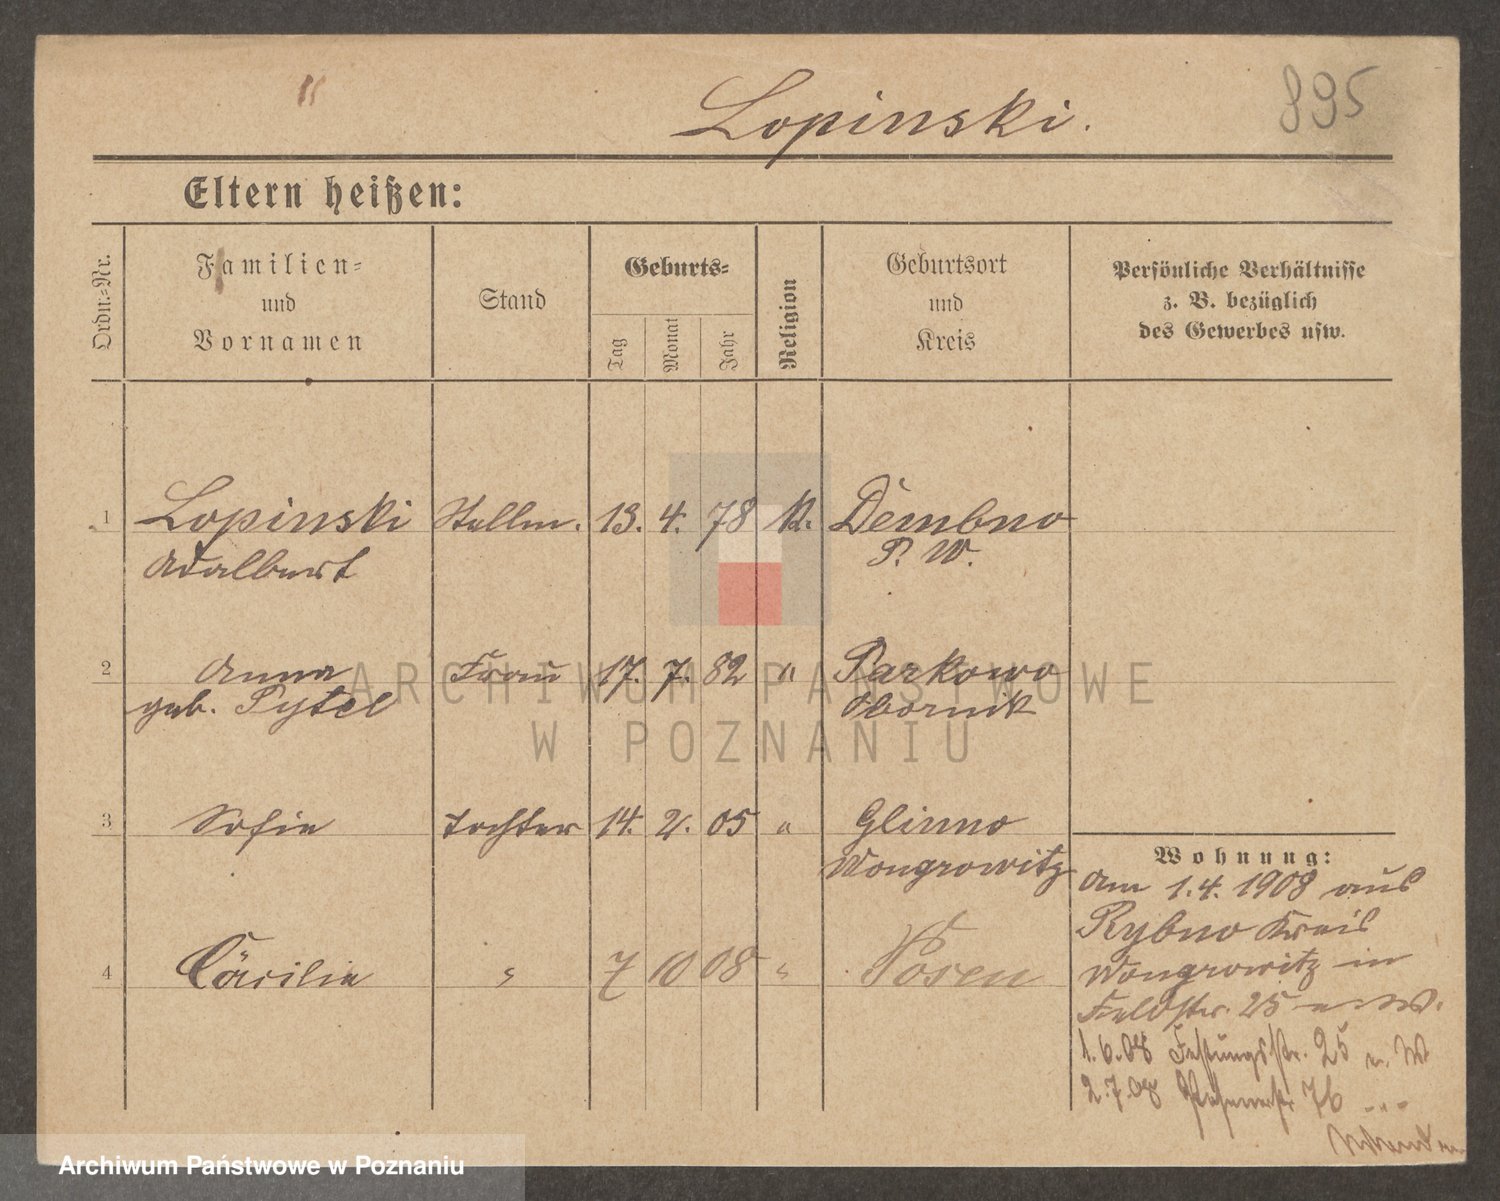 895
Lopinski.
Eltern heißen:
Ordn.-Nr.
Familien-
und
Vornamen
Stand
Geburts-
Tag
Monat
Jahr
Religion
Geburtsort
und
Kreis
Persönliche Verhältnisse
z. B. bezüglich
des Gewerbes usw.
1 Lopinski Stellm. 13. 4. 78 K. Dembno
Adalbert P. W.
2 Anna Frau 17. 7. 82 " Parkowo
geb. Pytel Obornik
3 Sofie Tochter 14. 2. 05 " Glinno
Wongrowitz
4 Cäcilie " 7 10 08 " Posen
Wohnung:
Am 1.4.1908 aus
Rybno Kreis
Wongrowitz in
Feldstr. 25
1.6.08 Festungsstr. 25 n. W
2.7.08 76
ARCHIWUM PAŃSTWOWE
W POZNANIU
Archiwum Państwowe w Poznaniu